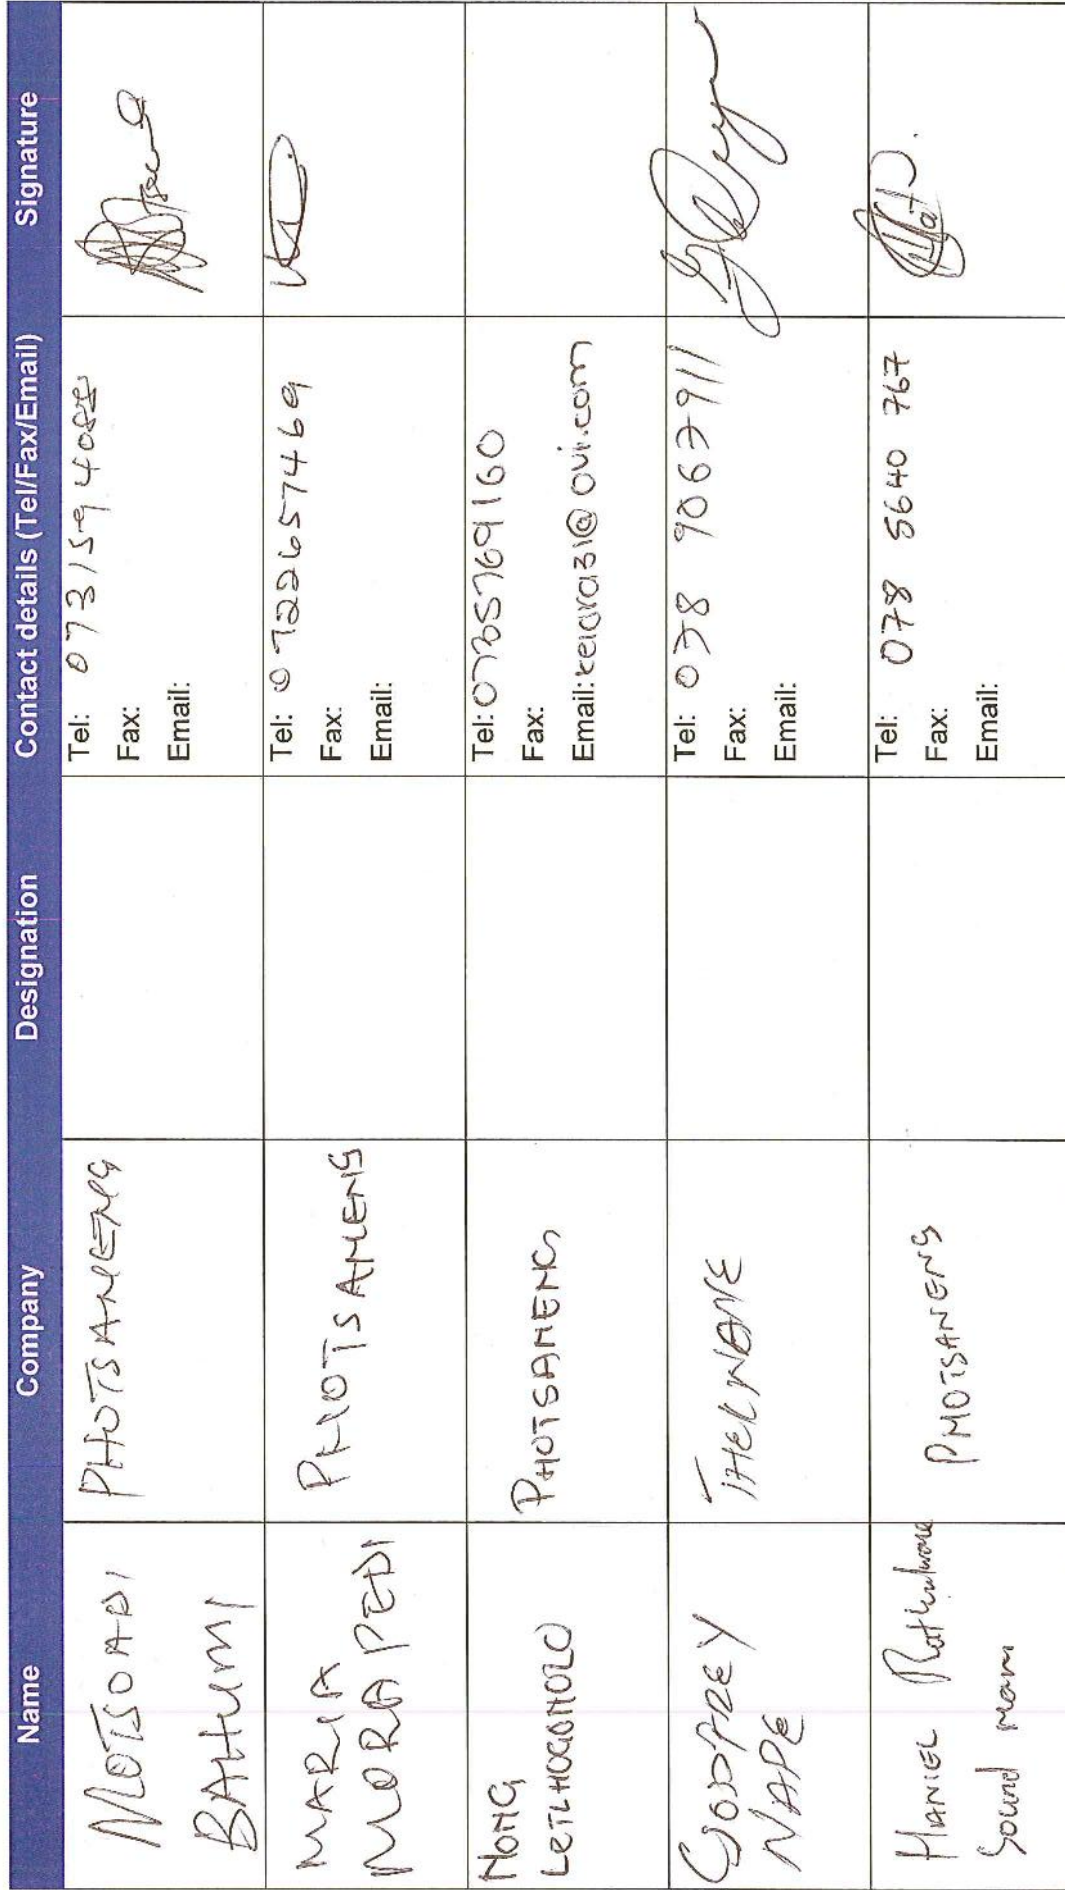 Name Company Designation Contact details (Tel/Fax/Email) Signature
MOTSOADI
BAHUMI
PHOTSANENG
Tel: 0731594088
Fax:
Email:
MARIA
MORAPEDI
PHOTSANENG
Tel: 0722657469
Fax:
Email:
LETLHOGONOLO
PHOTSANENG
Tel: 0735769160
Fax:
Email:
GODFREY
NAPE
THEKWANE
Tel: 078 9067911
Fax:
Email:
HANIEL
Sound man
PHOTSANENG
Tel: 078 5640 767
Fax:
Email: